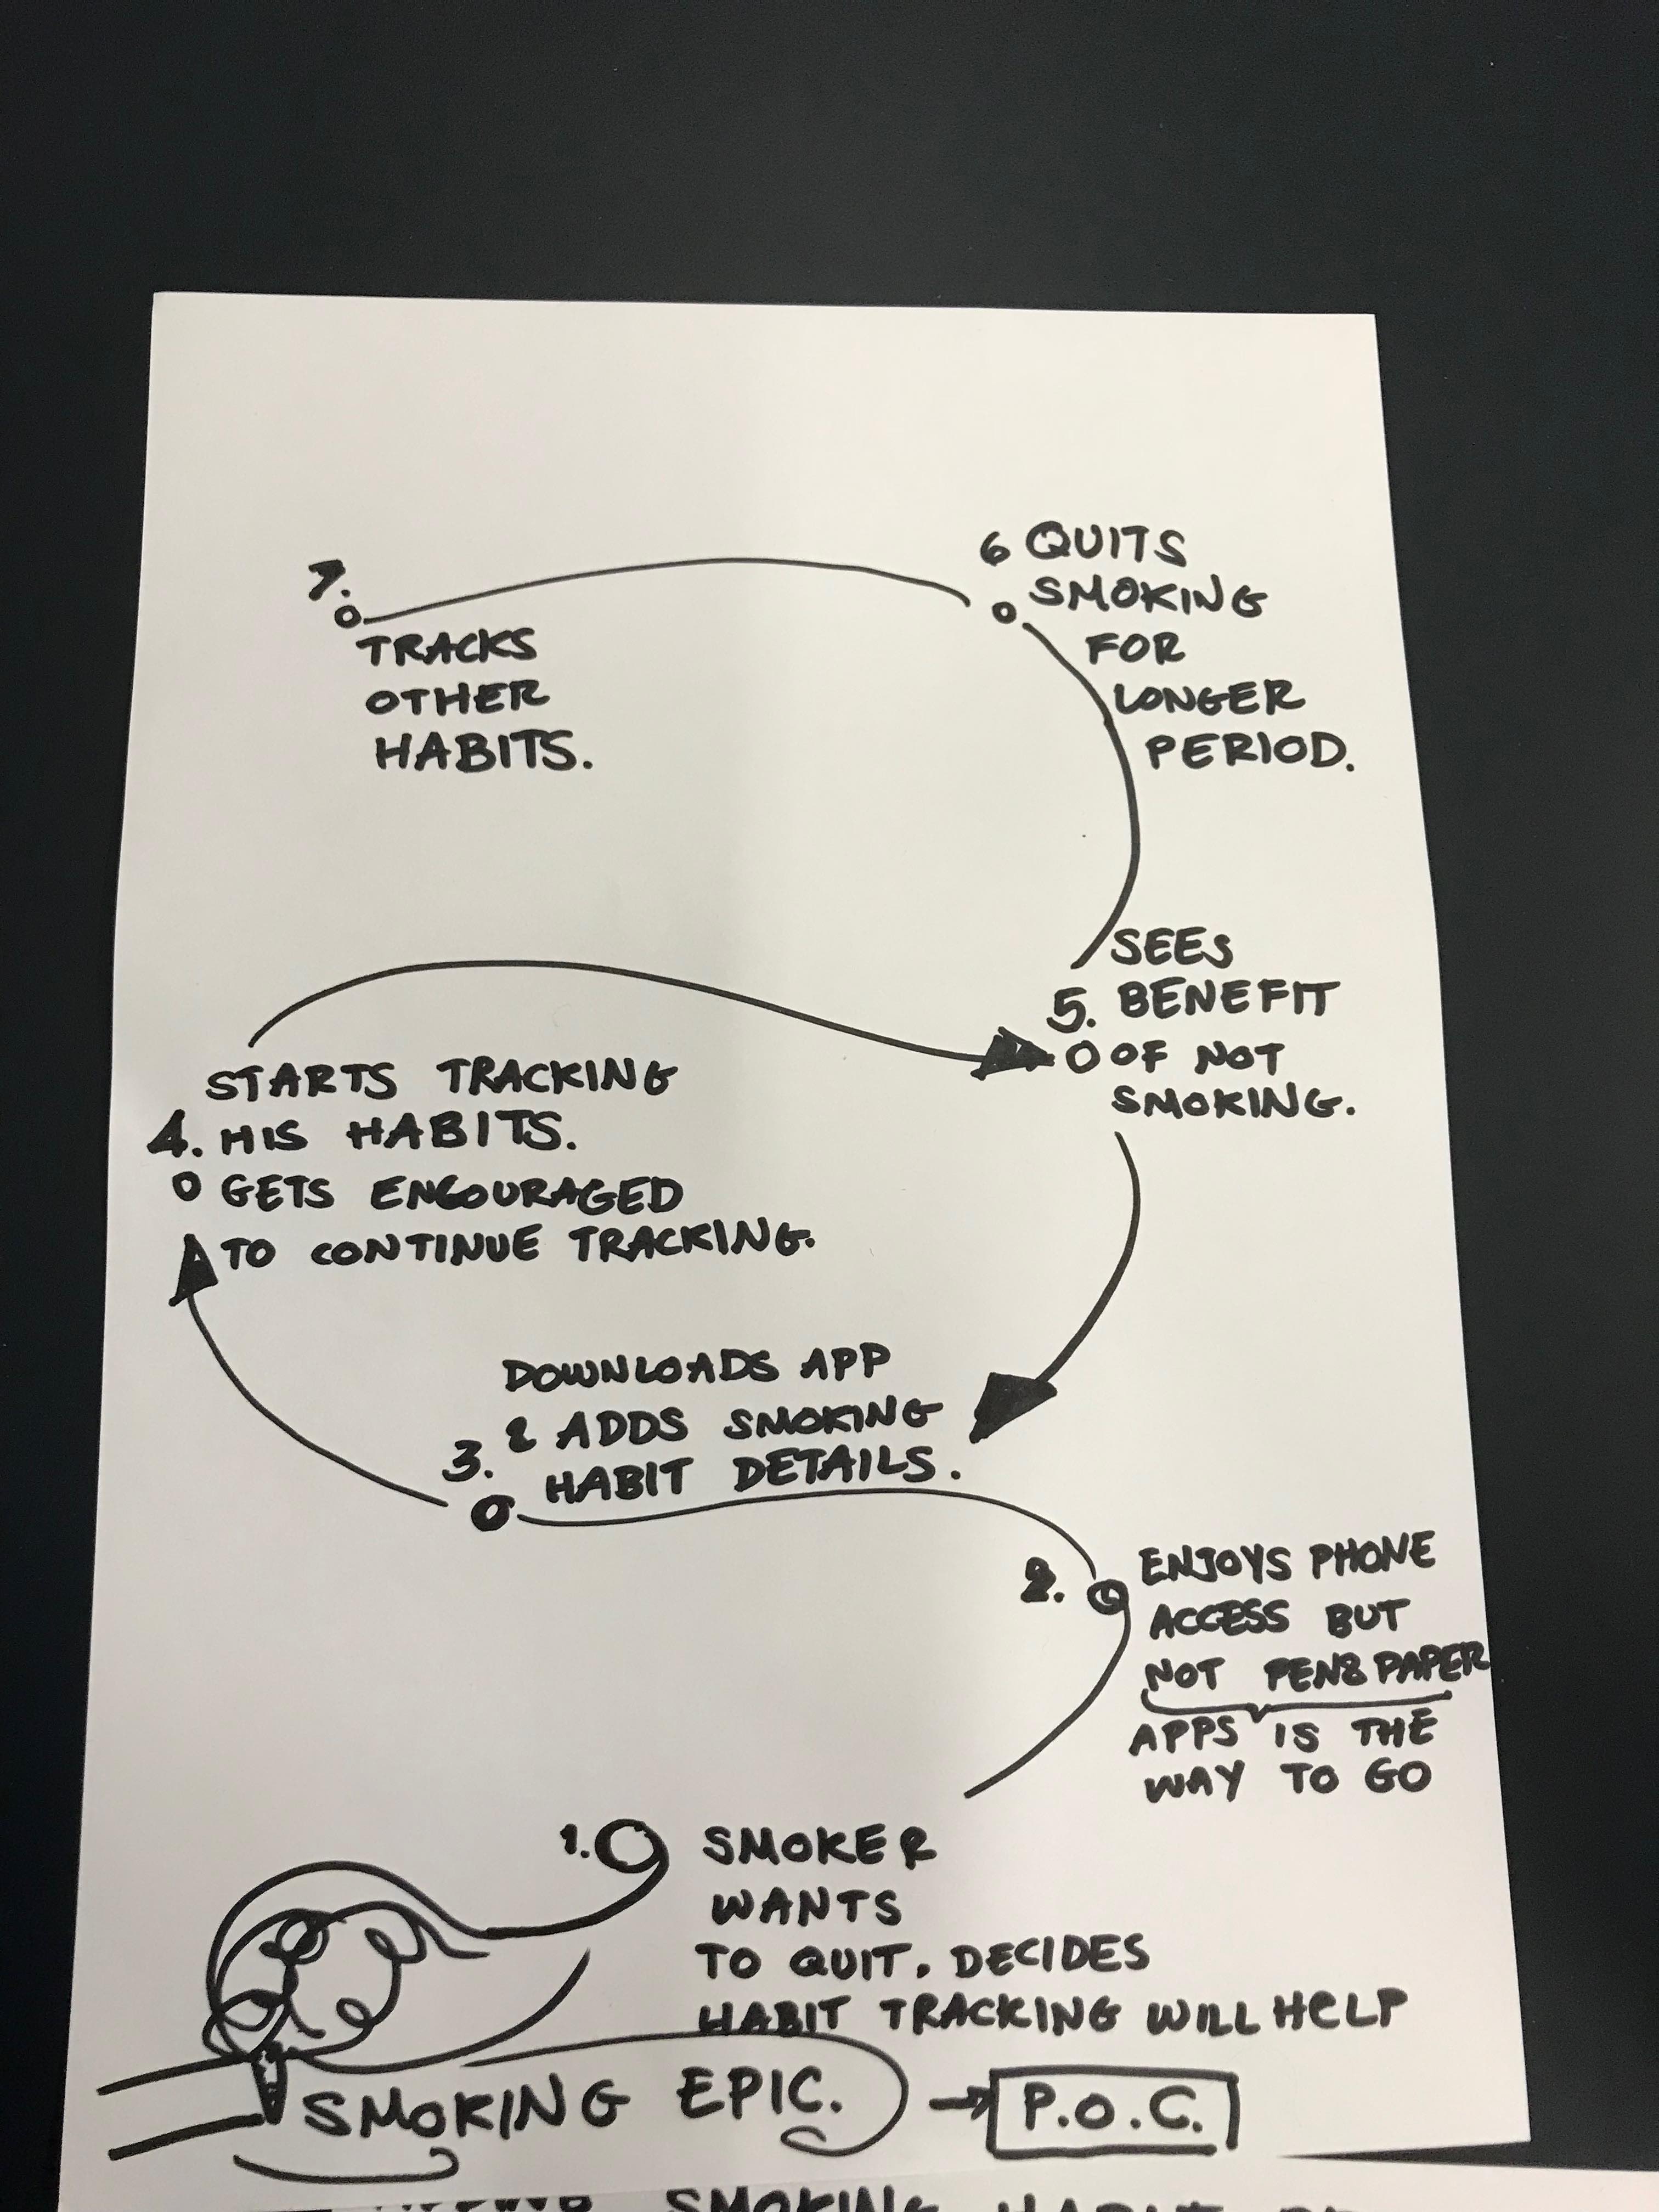 7.
TRACKS
OTHER
HABITS.
6 QUITS
SMOKING
FOR
LONGER
PERIOD.
SEES
5. BENEFIT
OF NOT
SMOKING.
STARTS TRACKING
4. HIS HABITS.
GETS ENCOURAGED
TO CONTINUE TRACKING.
DOWNLOADS APP
& ADDS SMOKING
3. HABIT DETAILS.
2. ENJOYS PHONE
ACCESS BUT
NOT PEN & PAPER
APPS IS THE
WAY TO GO
1. SMOKER
WANTS
TO QUIT. DECIDES
HABIT TRACKING WILL HELP
SMOKING EPIC. → P.O.C.
SMOKING HABIT